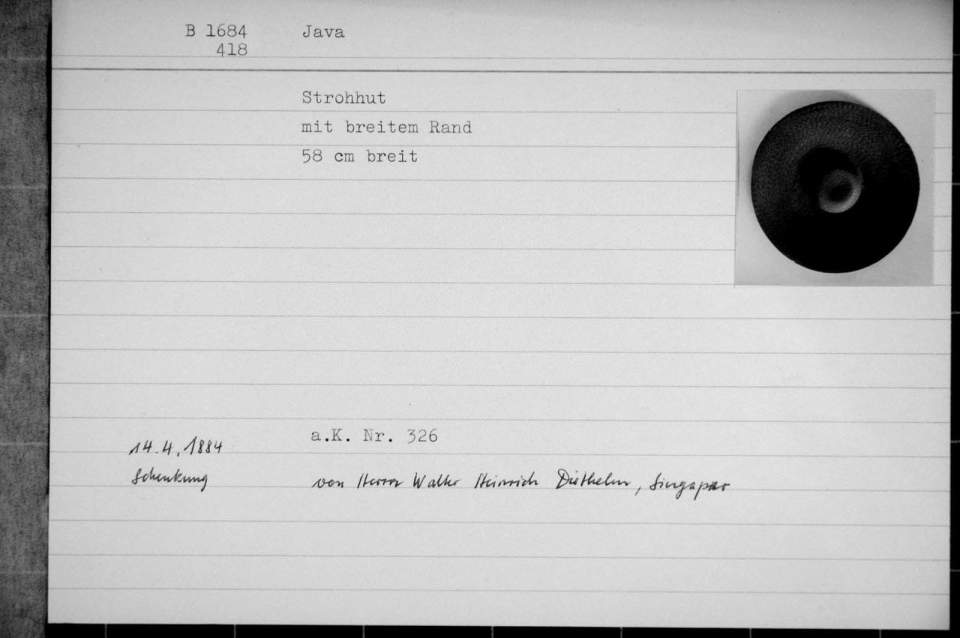 B 1684 Java
418
Strohhut
mit breitem Rand
58 cm breit
a.K. Nr. 326
14.4.1884
Schenkung von Herrn Walter Heinrich Diethelm, Singapur